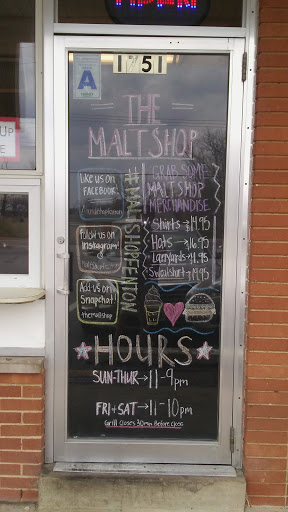 OPEN
A
1751
THE
MALT SHOP
Like us on
FACEBOOK
Follow us on
Instagram!
Add us on
Snapchat!
themaltshop
#MALTSHOPFENTON
GRAB SOME
MALT SHOP
MERCHANDISE
Shirts → 14.95
Hats →
Lanyards →
Sweatshirt →
HOURS
SUN-THUR → 11-9pm
FRI + SAT → 11-10pm
Grill Closes 30 min. Before Close
UP
E